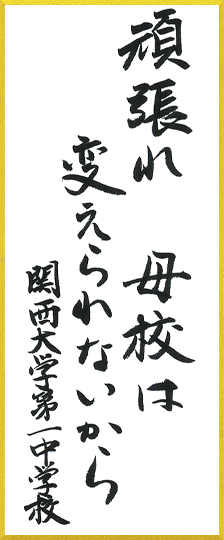 頑張れ　母校は
変えられないから
関西大学第一中学校